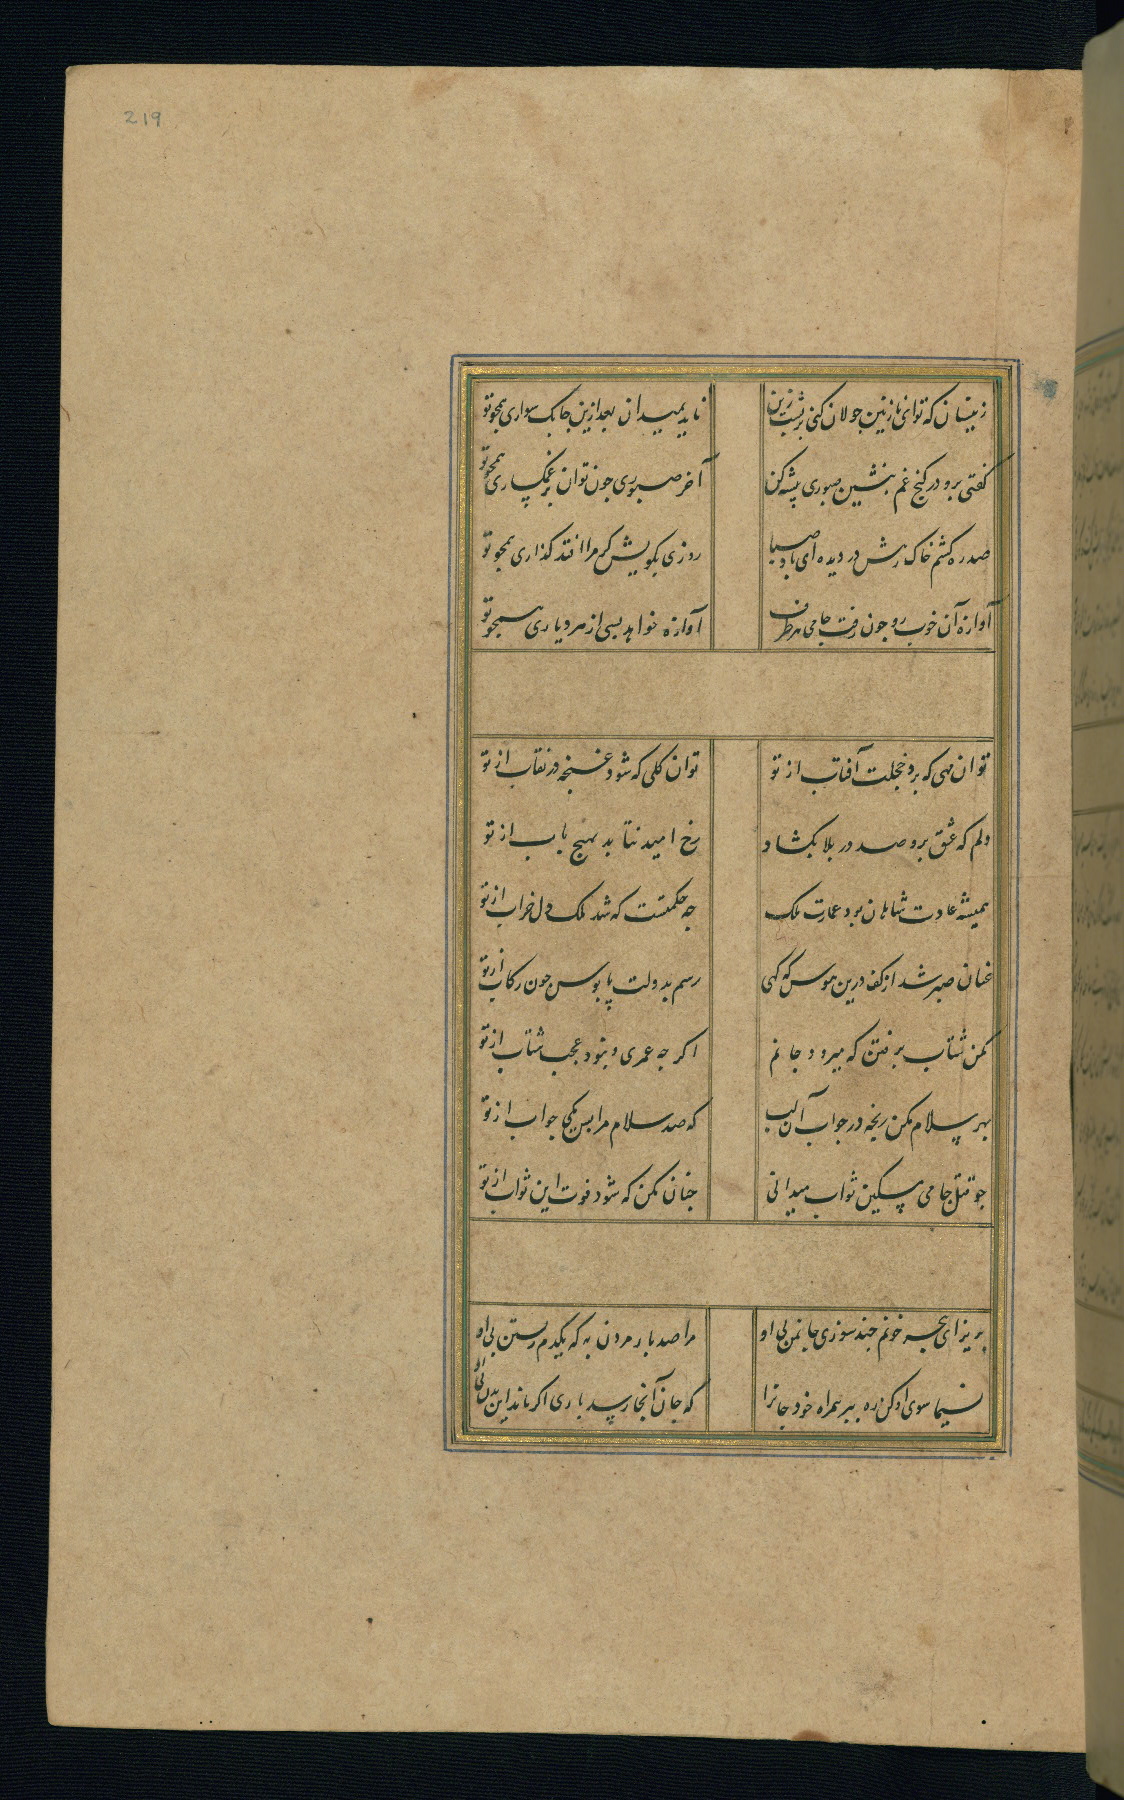 219
زینسان که توای نازنین جولان کنی بر پشت زین
ناید بمیدان بعد ازین چابک سواری همچو تو
گفتی برو در کنج غم بنشین صبوری پیشه کن
آخر صبوری چون توان بر غمگساری همچو تو
صد ره کشم خاک رهش در دیده ای باد صبا
روزی بکویش گر مرا افتد گذاری همچو تو
آوازه آن خوب رو چون رفت جامی هر طرف
آواره خواهد بسی از هر دیاری همچو تو
تو ان مهی که برد خجلت آفتاب از تو
تو ان گلی که شود غنچه در نقاب از تو
دلم که عشق برو صد در بلا بگشاد
رخ امید نتابد بهیچ باب از تو
همیشه عادت شاهان بود عمارت ملک
چه حکمتست که شد ملک دل خراب از تو
عنان صبر شد از کف درین هوس که گهی
رسم بدولت پابوس چون رکاب از تو
مکن شتاب برفتن که میرود جانم
اگر چه عمری و نبود عجب شتاب از تو
بهر سلام مکن رنجه در جواب آن لب
که صد سلام مرا بس یکی جواب از تو
چو قتل جامی مسکین ثواب میدانی
چنان مکن که شود فوت این ثواب از تو
بریز ای هجر خونم چند سوزی جان من بی او
مرا صد بار مردن به که یکدم زیستن بی او
نسیما سوی او کن ره ببر همراه خود جانرا
که جان آنجا رسد باری اگر ماند این بدن بی او